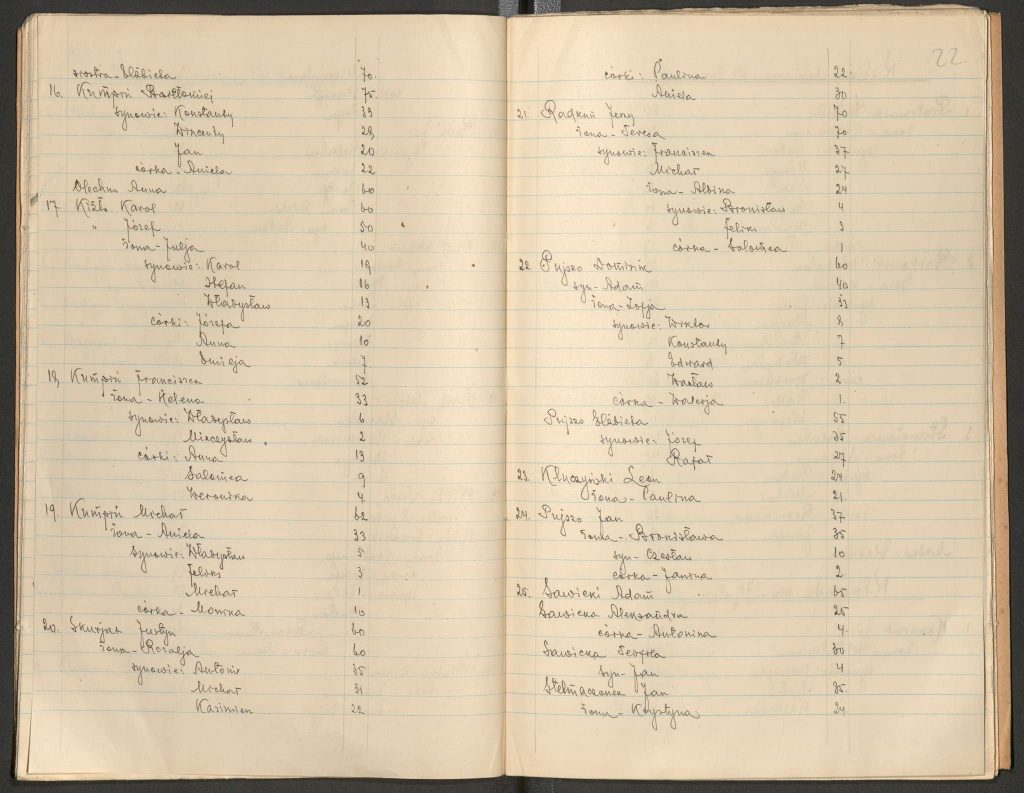 siostra - Elżbieta 70.
16. Kumpiń Bartłomiej 75.
synowie: Konstanty 33
Wincenty 28
Jan 20
córka - Aniela 22
Olechno Anna 60
17 Kiżło Karol 60
" Józef 50
żona - Julja 40
synowie: Karol 19
Stefan 16
Władysław 13
córki: Józefa 20
Anna 10
Emilja 7
18, Kumpiń Franciszek 52
żona - Helena 33
synowie: Władysław 6
Mieczysław 2
córki: Anna 13
Salomea 9
Weronika 4.
19. Kumpiń Michał 62
żona - Aniela 33
synowie: Władysław 5
Feliks 3
Michał 1.
córka - Monika 10
20. Skurjat Justyn 60
żona - Rozalja 60
synowie: Antoni 35
Michał 31
Kazimierz 22
22
córki: Paulina 22
Aniela 30
21. Radkun Jerzy 70
żona - Teresa 70
synowie: Franciszek 37
Michał 27
żona - Albina 24
synowie: Bronisław 4
Feliks 3
córka - Salomea 1
22. Pujszo Dominik 60
syn - Adam 40
żona - Zofja 33
synowie: Wiktor 8
Konstanty 7
Edward 5
Wacław 2
córka - Walerja 1.
Pujszo Elżbieta 55
synowie: Józef 35
Rafał 27
23. Kluczyński Leon 24
żona - Paulina 21.
24. Pujszo Jan 37
żona - Bronisława 35
syn - Czesław 10
córka - Janina 2.
25. Sawicki Adam 65
Sawicka Aleksandra 25
córka - Antonina 4.
Sawicka Teofila 30
syn - Jan 4
Stelmaczonek Jan 35.
żona - Krystyna 24